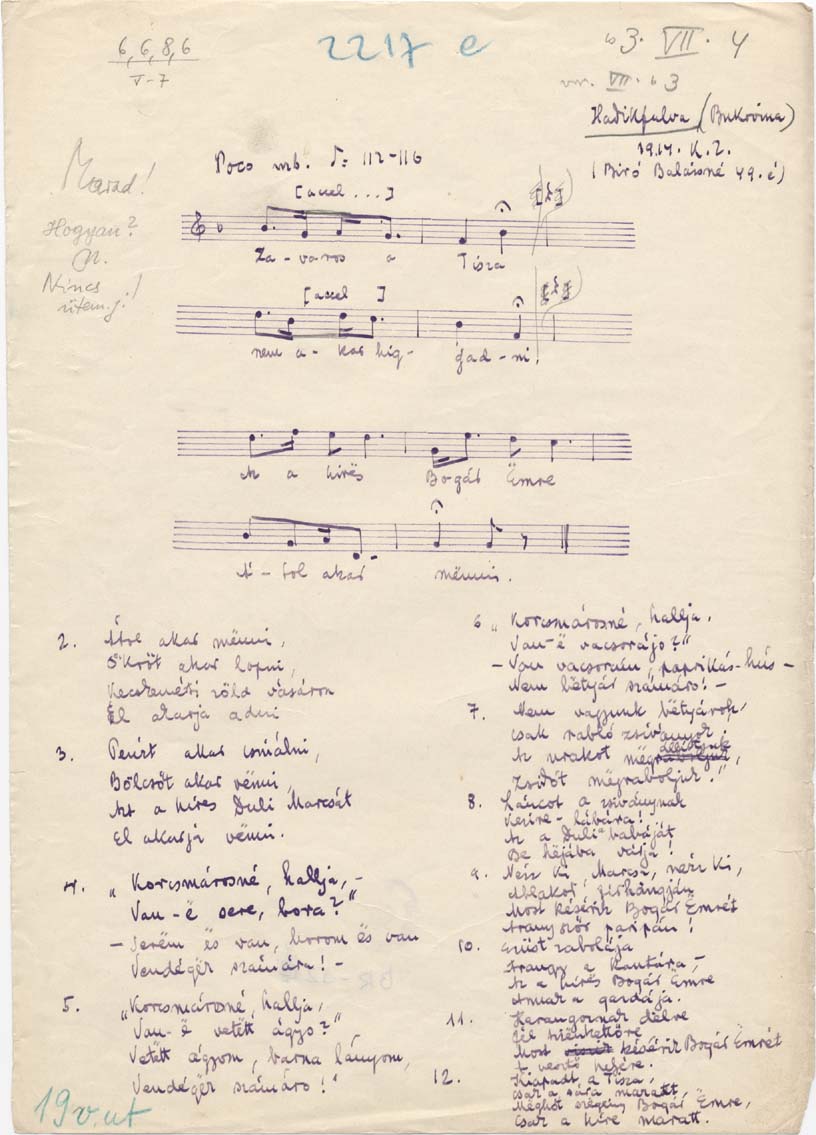 6, 6, 8, 6
V-7
2217 e
b3. VII. 4
VII. b3
Hadikfalva (Bukovina)
1914. K. Z.
(Biró Balázsné 49. é)
Marad!
Hogyan?
Nincs
ütemj.!
Poco rub. ♪= 112-116
[accel ...]
Za-varos a Tisza
[accel ]
nem a-kar hig-gad-ni,
Az a hirës Bogár Ëmre
Á-tol akar mënni.
2. Átol akar mënni,
Ökröt akar lopni,
Kecskeméti zöld vásáron
El akarja adni
3. Penzt akar csinálni,
Bölcsőt akar vënni,
Azt a hires Duli Marcsát
El akarja vënni.
4. "Korcsmárosné, hallja,-
Van-ë sere, bora?"
-Serëm és van, borom és van
Vendégëk számára!-
5. "Korcsmárosné, hallja,
Van-ë vetëtt ágyo?"
Vetëtt ágyom, barna lányom,
Vendégëk számáro!"
6 "Korcsmárosné, hallja,
Van-ë vacsorájo?"
-Van vacsorám, paprikás-hús-
Nem bëtyár számáro!-
7. Nem vagyunk bëtyárok,
csak rabló zsiványok,
Az urakot mëg
Zsidót mëgraboljuk."
8. Láncot a zsiványnak
Kezire-lábára!
Az a Duli babáját
Be héjába várja!
9. Nézz ki, Marcsa, nézz ki,
Ablakot firhangján
Most késérik Bogár Ëmrét
Aranyszőr paripán!
10. Ezüst zabolája
Arany a kantára,-
Az a hirës Bogár Ëmre
Annak a gazdája.
11. Harangoznak délre
fél tizënkettőre
Most késérik Bogár Ëmrét
A vesztő helyre.
12. Kiapadt a Tisza,
csak a sára maratt,
Mëghót szëgény Bogár Ëmre,
Csak a hire maratt.
19 v. ut